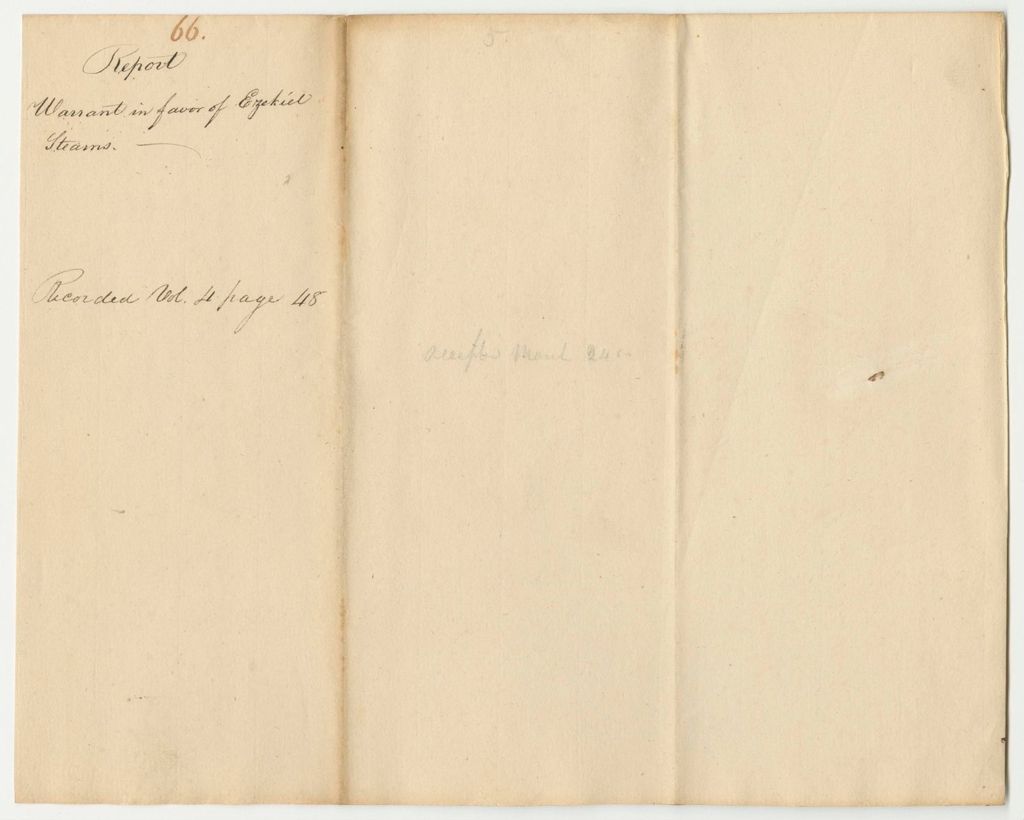 66.
Report
Warrant in favor of Ezekiel
Stearns.
Recorded Vol. 4 page 48
5.
March 24